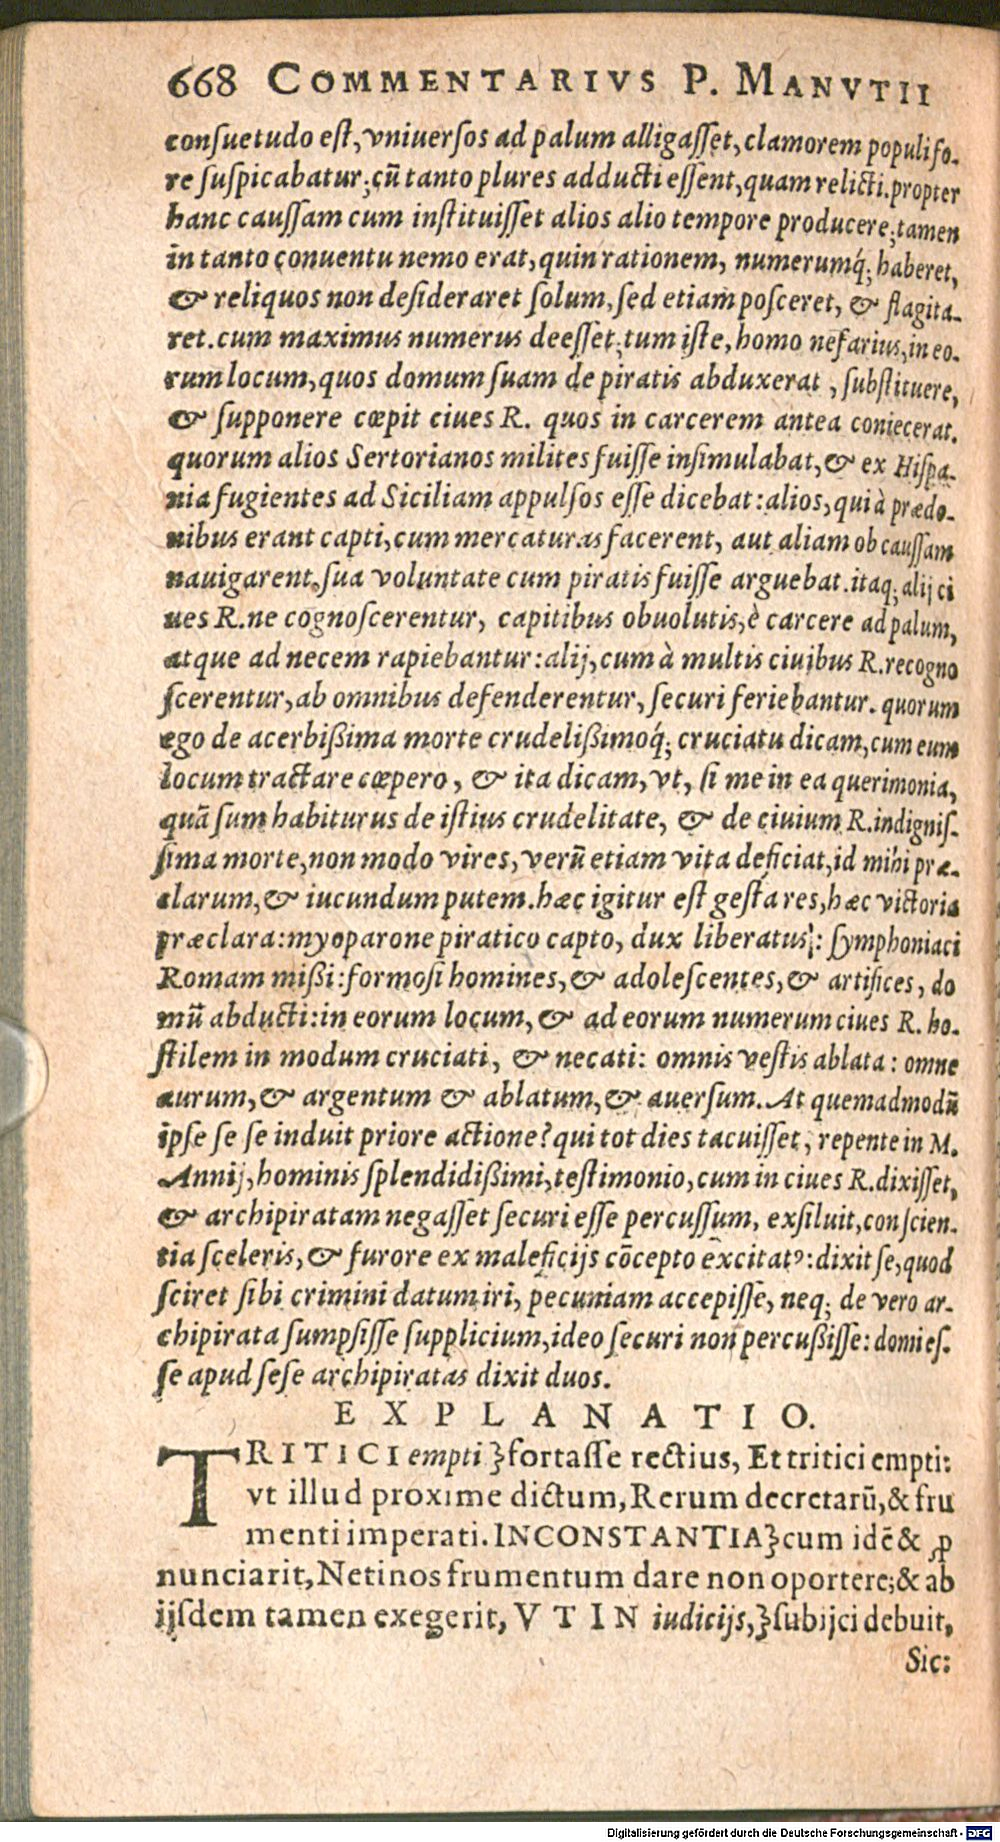 668 COMMENTARIVS P. MANVTII
consuetudo est, vniuersos ad palum alligasset, clamorem populi fo-
re suspicabatur; cũ tanto plures adducti essent, quam relicti. propter
hanc caussam cum instituisset alios alio tempore producere; tamen
in tanto conuentu nemo erat, quin rationem, numerumq́; haberet,
& reliquos non desideraret solum, sed etiam posceret, & flagita-
ret. cum maximus numerus deesset; tum iste, homo nefarius, in eo-
rum locum, quos domum suam de piratis abduxerat, substituere,
& supponere cœpit ciues R. quos in carcerem antea coniecerat.
quorum alios Sertorianos milites fuisse insimulabat, & ex Hispa-
nia fugientes ad Siciliam appulsos esse dicebat: alios, qui à prædo-
nibus erant capti, cum mercaturas facerent, aut aliam ob caussam
nauigarent, sua voluntate cum piratis fuisse arguebat. itaq; alij ci
ues R. ne cognoscerentur, capitibus obuolutis, è carcere ad palum,
atque ad necem rapiebantur: alij, cum à multis ciuibus R. recogno
scerentur, ab omnibus defenderentur, securi feriebantur. quorum
ego de acerbißima morte crudelißimoq́; cruciatu dicam, cum eum
locum tractare cœpero, & ita dicam, vt, si me in ea querimonia,
quã sum habiturus de istius crudelitate, & de ciuium R. indignis-
sima morte, non modo vires, verũ etiam vita deficiat, id mihi præ-
clarum, & iucundum putem. hæc igitur est gesta res, hæc victoria
præclara: myoparone piratico capto, dux liberatus: symphoniaci
Romam mißi: formosi homines, & adolescentes, & artifices, do
mũ abducti: in eorum locum, & ad eorum numerum ciues R. ho-
stilem in modum cruciati, & necati: omnis vestis ablata: omne
aurum, & argentum & ablatum, & auersum. At quemadmodũ
ipse se se induit priore actione? qui tot dies tacuisset, repente in M.
Annij, hominis splendidißimi, testimonio, cum in ciues R. dixisset,
& archipiratam negasset securi esse percussum, exsiluit, conscien-
tia sceleris, & furore ex maleficijs cõcepto excitatꝰ: dixit se, quod
sciret sibi crimini datum iri, pecuniam accepisse, neq; de vero ar-
chipirata sumpsisse supplicium, ideo securi non percußisse: domi es-
se apud sese archipiratas dixit duos.
EXPLANATIO.
TRITICI empti ⁊ fortasse rectius, Et tritici empti:
vt illud proxime dictum, Rerum decretarũ, & fru
menti imperati. INCONSTANTIA⁊ cum idẽ & ꝓ
nunciarit, Netinos frumentum dare non oportere; & ab
ijsdem tamen exegerit, VT IN iudicijs, ⁊ subijci debuit,
Sic:
Digitalisierung gefördert durch die Deutsche Forschungsgemeinschaft - DFG